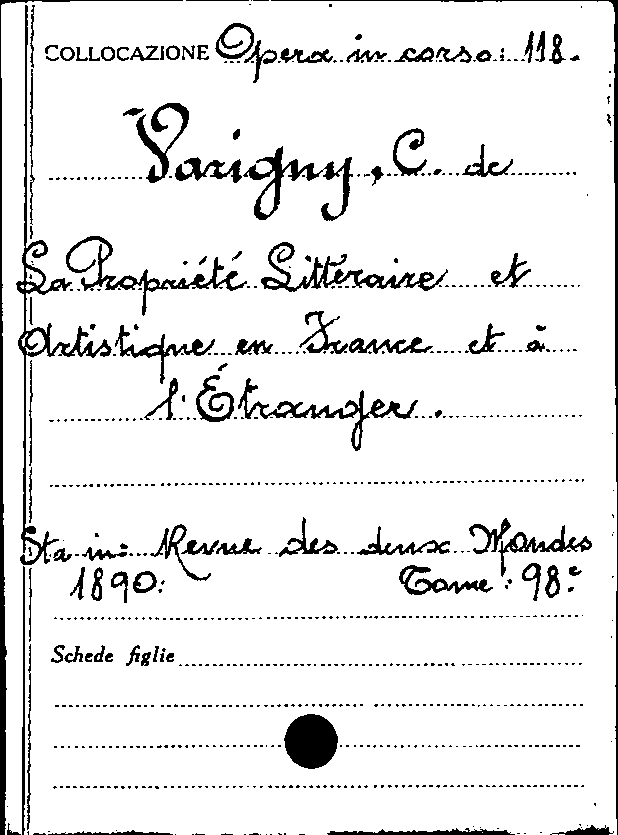 COLLOCAZIONE Opera in corso: 118.
Varigny, C. de
La Propriété Littéraire et
Artistique en France et à
l'Étranger.
Sta in: Revue des deux Mondes
1890: Tome: 98.e
Schede figlie